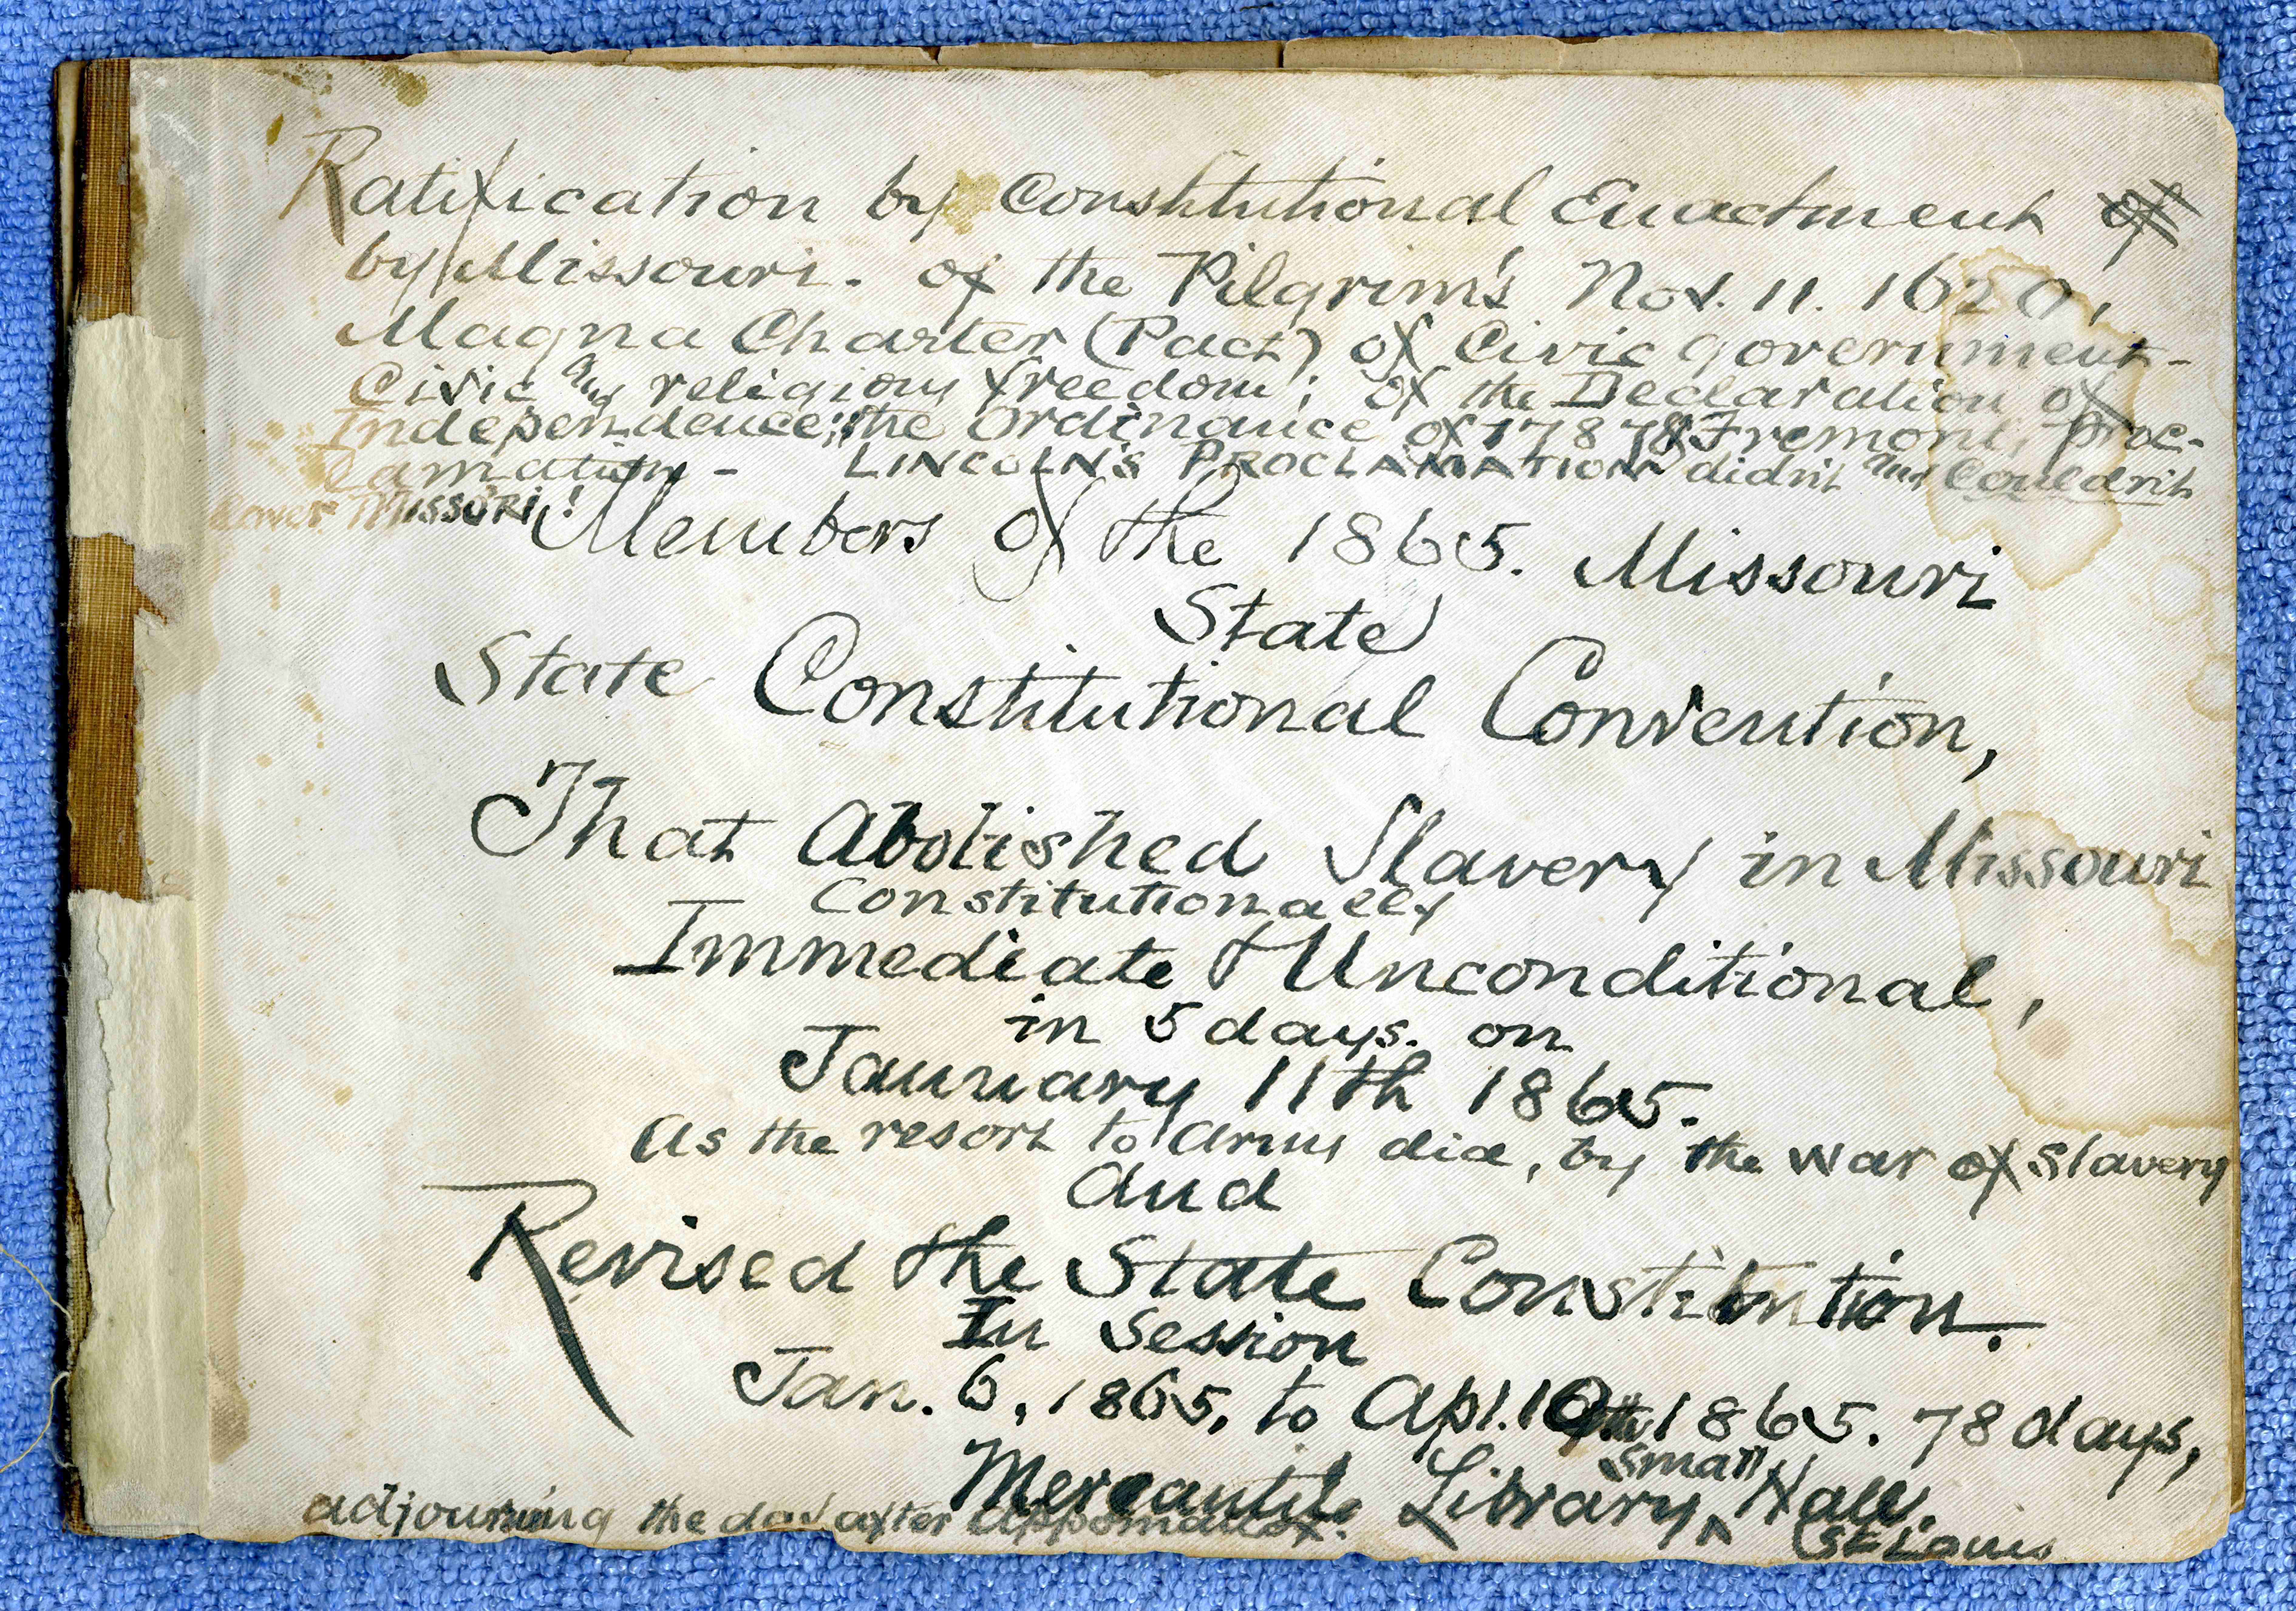 Ratification by Constitutional Enactment of
by Missouri. of the Pilgrim's Nov. 11. 1620,
Magna Charter (Pact) of Civic government-
Civic & religious freedom; of the Declaration of
Independence; the Ordinance of 1787 & Fremont, Proc-
lamation - LINCOLN'S PROCLAMATION didn't and Couldn't
cover MISSOURI!
Members of the 1865. Missouri
State
State Constitutional Convention,
That Abolished Slavery in Missouri
Constitutionally
Immediate & Unconditional,
in 5 days. on
January 11th 1865.
As the resort to arms did, by the war of slavery
And
Revised the State Constitution.
In Session
Jan. 6, 1865, to Apl. 10th 1865. 78 days,
Small
Mercantile Library ^ Hall.
adjourning the day after Appomattox. St Louis